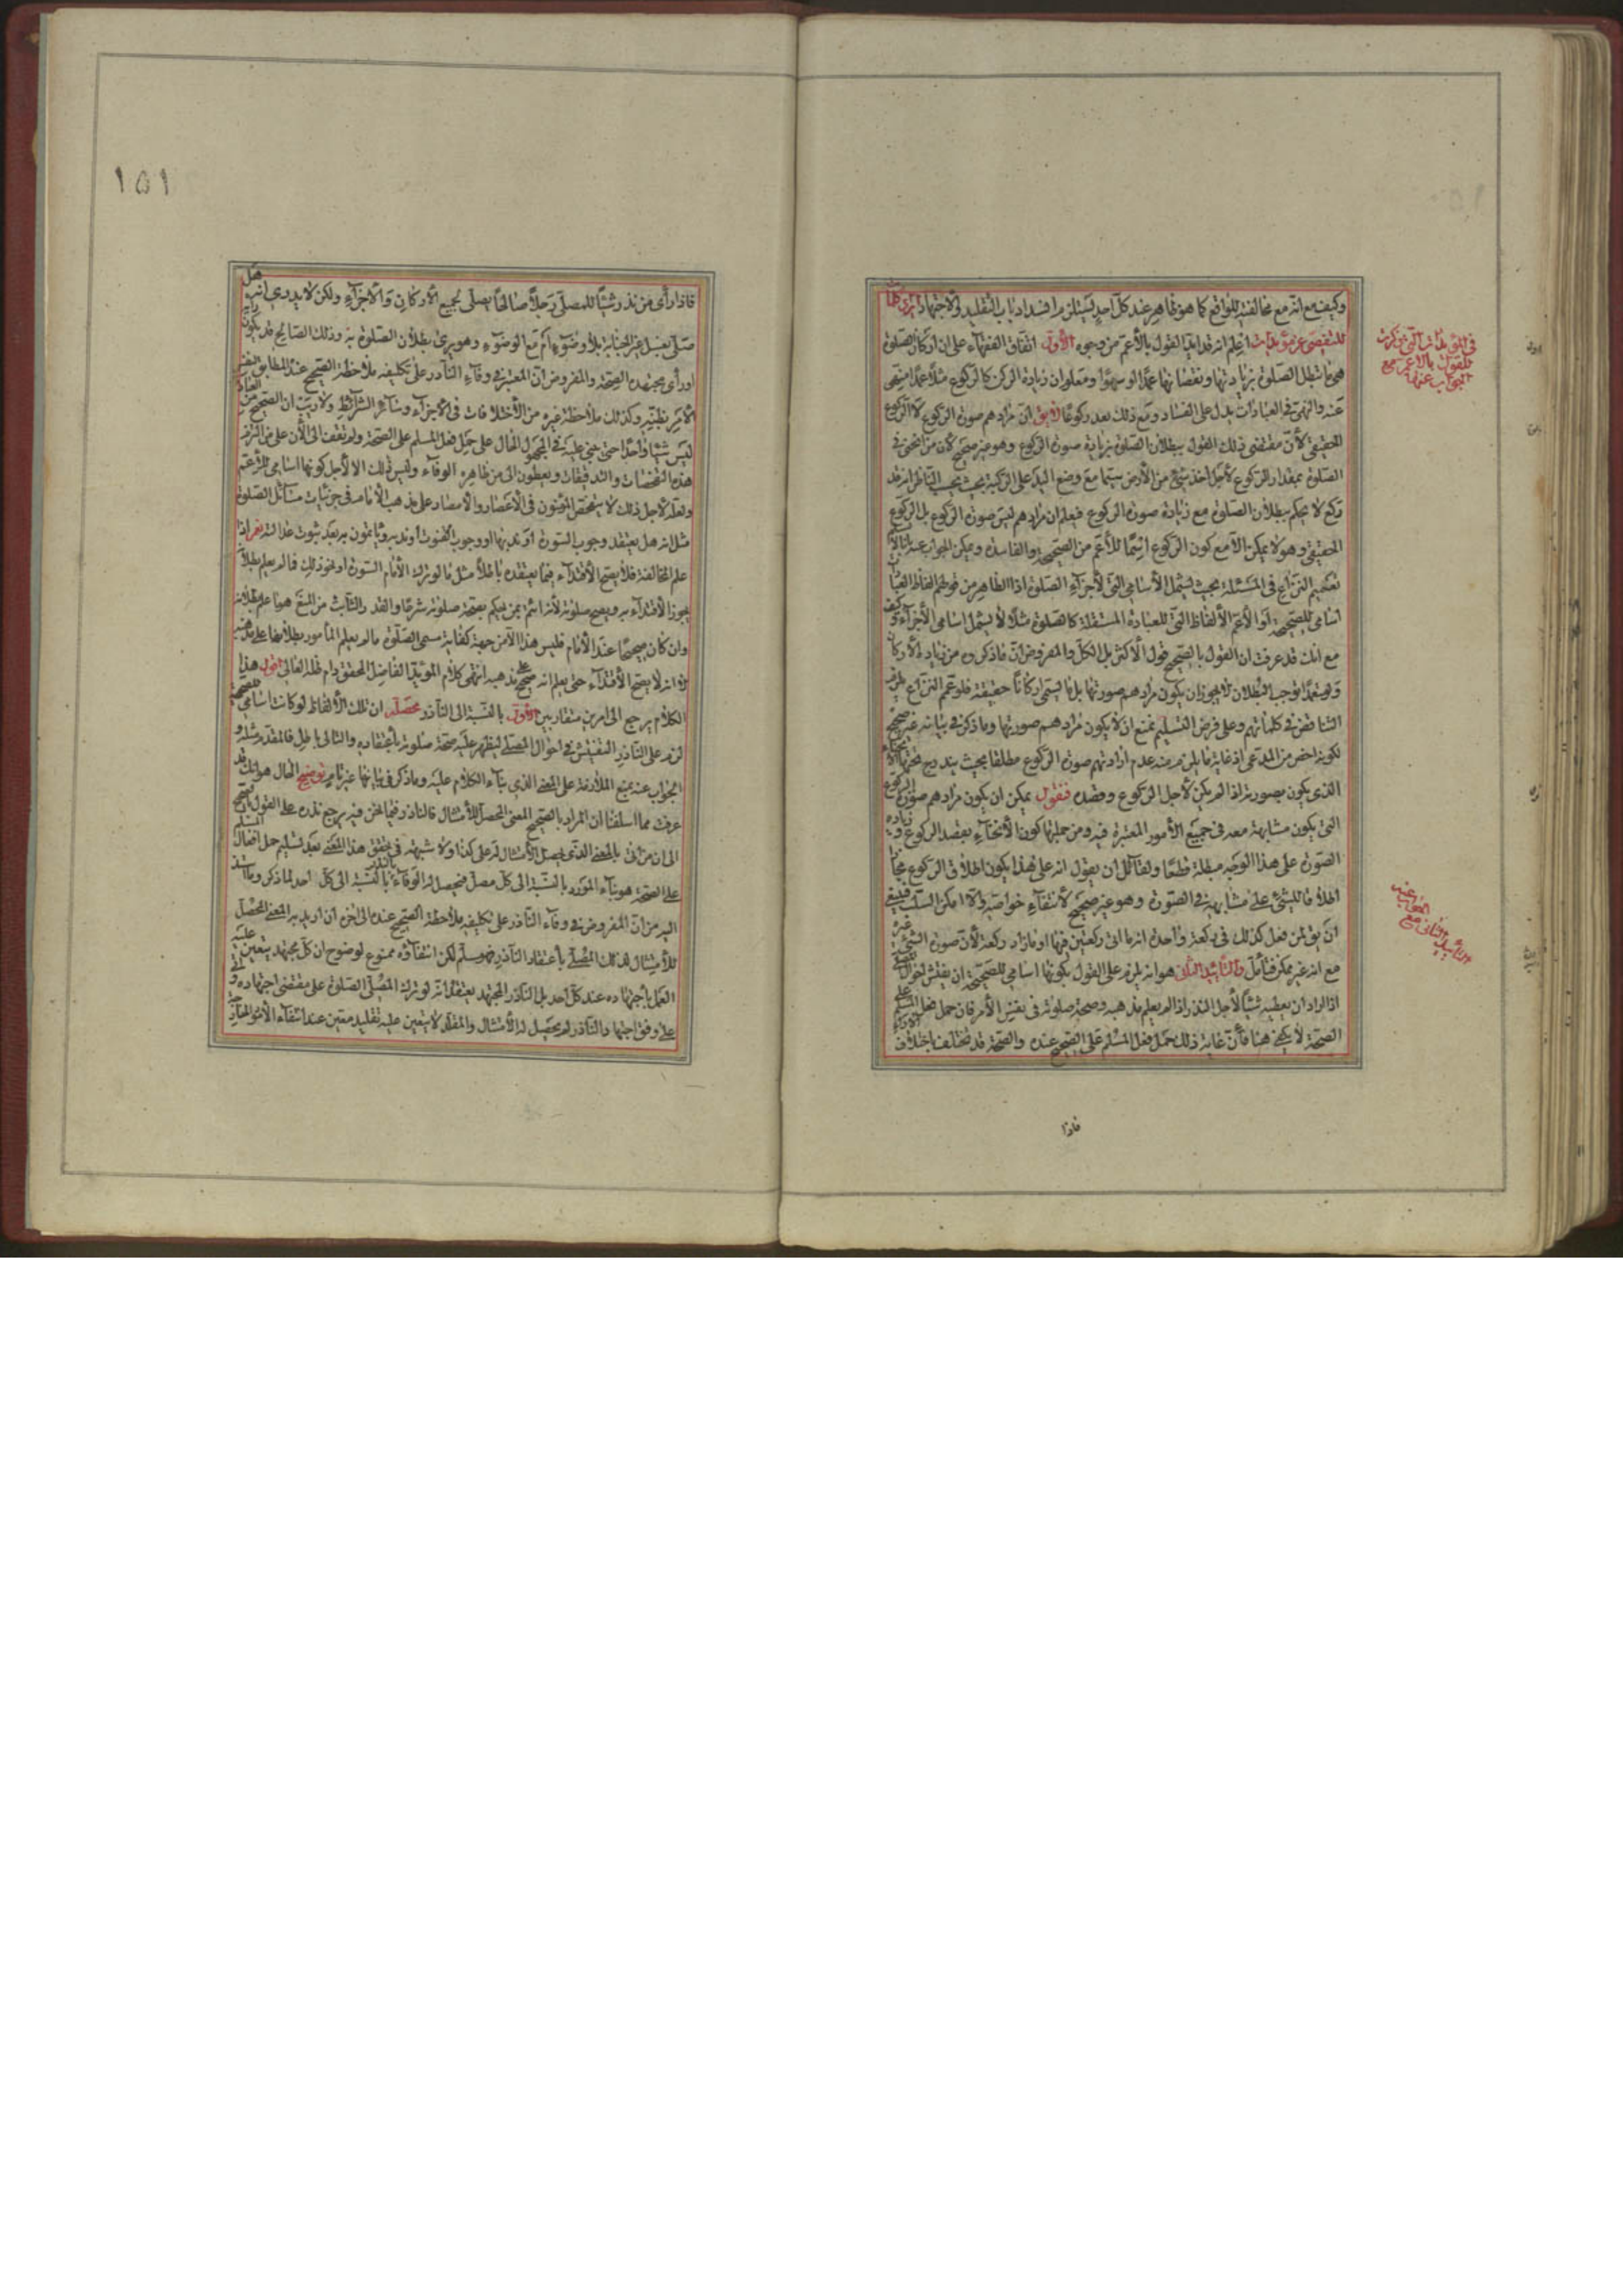 وكيف مع انه مع مخالفته للواقع كما هو ظاهر عند كل احد يستلزم انسداد باب التقليد والاجتهاد
للتفصى عن مؤيدات اعلم انه قد ايد القول بالأعم من وجوه الأول اتفاق الفقهاء على ان اركان الصلوة
هى ما تبطل الصلوة بزيادتها ونقصانها عمدا او سهوا ومعلوم ان زيادة الركن كالركوع مثلا عمدا منهى
عنه والنهى فى العبادات يدل على الفساد ومع ذلك يعد ركوعا لا يق ان مرادهم صورة الركوع لا الركوع
الحقيقى لأن مقتضى ذلك القول ببطلان الصلوة بزيادة صورة الركوع وهو غير صحيح لأن من انحنى فى
الصلوة بمقدار الركوع لأجل اخذ شئ من الأرض سيما مع وضع اليد على الركبة بحيث يحسب الناظر انه قد
ركع لا يحكم ببطلان الصلوة مع زيادة صورة الركوع فعلم ان مرادهم ليس صورة الركوع بل الركوع
الحقيقى وهو لا يمكن الا مع كون الركوع اسما للأعم من الصحيحة والفاسدة ويمكن الجواب عنه
تعميم النزاع فى المسئلة بحيث يشمل الأسامى التى لأجزاء الصلوة اذ الظاهر من قولهم الفاظ العبادات
اسامى للصحيحة او الأعم الألفاظ التى للعبادة المستقلة كالصلوة مثلا لا يشمل اسامى الأجزاء وكيف
مع انك قد عرفت ان القول بالصحيح قول الأكثر بل الكل والمفروض ان ما ذكروه من زيادة الأركان
ولو عمدا توجب البطلان لا يجوز ان يكون مرادهم صورتها بل ما يسمى اركانا حقيقة فلو عمم النزاع يلزم
التناقض فى كلماتهم وعلى فرض التسليم نمنع ان لا يكون مرادهم صورتها وما ذكر فى بيانه غير صحيح
لكونه اخص من المدعى اذ غاية ما يلزم منه عدم ارادتهم صورة الركوع مطلقا بحيث يندرج تحتها
الذى يكون بصورته اذا لم يكن لأجل الركوع وقصده فنقول يمكن ان يكون مرادهم صورة الركوع
التى يكون مشابهة معه فى جميع الأمور المعتبرة فيه ومن جملتها كون الأنحناء بقصد الركوع وزيادة
الصورة على هذا الوجه مبطلة قطعا ولقائل ان يقول انه على هذا يكون اطلاق الركوع مجازا
اطلاقا للشئ على مشابهه فى الصورة وهو غير صحيح لأنتفاء خواصه والا امكن السلب فينبغى
ان يق لمن فعل كذلك فى ركعة واحدة انه ما اتى ركعتين فيها او ما زاد ركعة لأن صورة الشئ غيره
مع انه غير ممكن فتأمل والتأييد الثانى هو انه يلزم على القول بكونها اسامى للصحيحة ان يفتش
اذا اراد ان يعطيه شيئا لأجل النذر اذا لم يعلم مذهبه وصحة صلوته فى نفس الأمر فان حمل فعل المسلم على
الصحة لا يكفى هنا فأن غاية ذلك حمل فعل المسلم على الصحيح عنده والصحة قد تختلف باختلاف الآراء
فاذا
فى المؤيدات التى ذكرت
للقول بالاعم مع
الجواب عنها
التأييد الثانى مع
الجواب عنه
١٥١
فاذا رأى من نذر شيئا للمصلى رجلا صالحا يصلى بجميع الأركان والأجزاء ولكن لا يدرى انه هل
صلى بغسل غير الجنابة بلا وضوء ام مع الوضوء وهو يرى بطلان الصلوة به وذلك الصالح قد يكون
او رأى مجتهده الصحة والمفروض ان المعتبر فى وفاء الناذر على تكليفه ملاحظة الصحيح عند المطابق لنفس
الأمر بظنه وكذلك ملاحظة غيره من الأختلافات فى الأجزاء وسائر الشرائط ولا ريب ان الصحيح من
ليس شيئا واحدا حتى يبنى عليه فى المجهول الحال على حمل فعل المسلم على الصحة ولم نقف الى الأن على من التزم
هذه التفحصات والتدقيقات ويعطون الى من ظاهره الوفاء وليس ذلك الا لأجل كونها اسامى للأعم
ولعله لأجل ذلك لا يتفحص المؤمنون فى الأعصار والأمصار على مذهب الأمام فى جزئيات مسائل الصلوة
مثل انه هل يعتقد وجوب السورة او ندبها او وجوب القنوت او ندبه ويأتمون به بعد ثبوت عدالته نعم اذا
علم المخالفة فلا يصح الأقتداء فيما يعتقده باطلا مثل ما لو ترك الأمام السورة او نحو ذلك فما لم يعلم بطلانه
يجوز الأقتداء به ويصح صلوته لأنه ائتم بمن يحكم بصحة صلوته شرعا والقدر الثابت من المنع هو ما علم بطلانه
وان كان صحيحا عند الأمام فليس هذا الا من جهة كفاية مسمى الصلوة ما لم يعلم المأموم بطلانها على مذهبه
لا انه لا يصح الأقتداء حتى يعلم انه صحيح على مذهبه انتهى كلام المؤيد الفاضل المحقق دام ظله العالى اقول هذا
الكلام يرجع الى امرين متقاربين الأول بالنسبة الى الناذر محصله ان تلك الألفاظ لو كانت اسامى للصحيحة
لزم على الناذر التفتيش فى احوال المصلى ليظهر عليه صحة صلوته بأعتقاده والتالى باطل فالمقدم مثله و
الجواب عنه بمنع الملازمة على المعنى الذى بناء الكلام عليه وما ذكر فى بيانها غير تام توضيح الحال هو انك قد
عرفت مما اسلفنا ان المراد بالصحيح المعنى المحصل للأمتثال فالناذر فيما نحن فيه يرجع نذره على القول بالصحيح
الى ان من اتى بالمعنى الذى يحصل الأمتثال له على كذا ولا شبهة فى تحقق هذا المعنى بعد تسليم حمل افعال المسلم
على الصحة هو بناء المورد بالنسبة الى كل مصل فيحصل له الوفاء بالنذر بالنسبة الى كل احد لما ذكر وما استند
اليه من ان المفروض فى وفاء الناذر على تكليفه ملاحظة الصحيح عنده الى اخره ان اريد به المعنى المحصل
للأمتثال لذلك المصلى بأعتقاد الناذر فهو مسلم لكن انتفاؤه ممنوع لوضوح ان كل مجتهد يتعين عليه
العمل بأجتهاده عند كل احد بل الناذر المجتهد يعتقد انه لو ترك المصلى الصلوة على مقتضى اجتهاده و
على وفق اجتهاد الناذر لم يحصل له الأمتثال والمقلد لا يتعين عليه تقليد معين عند انتفاء الأمور